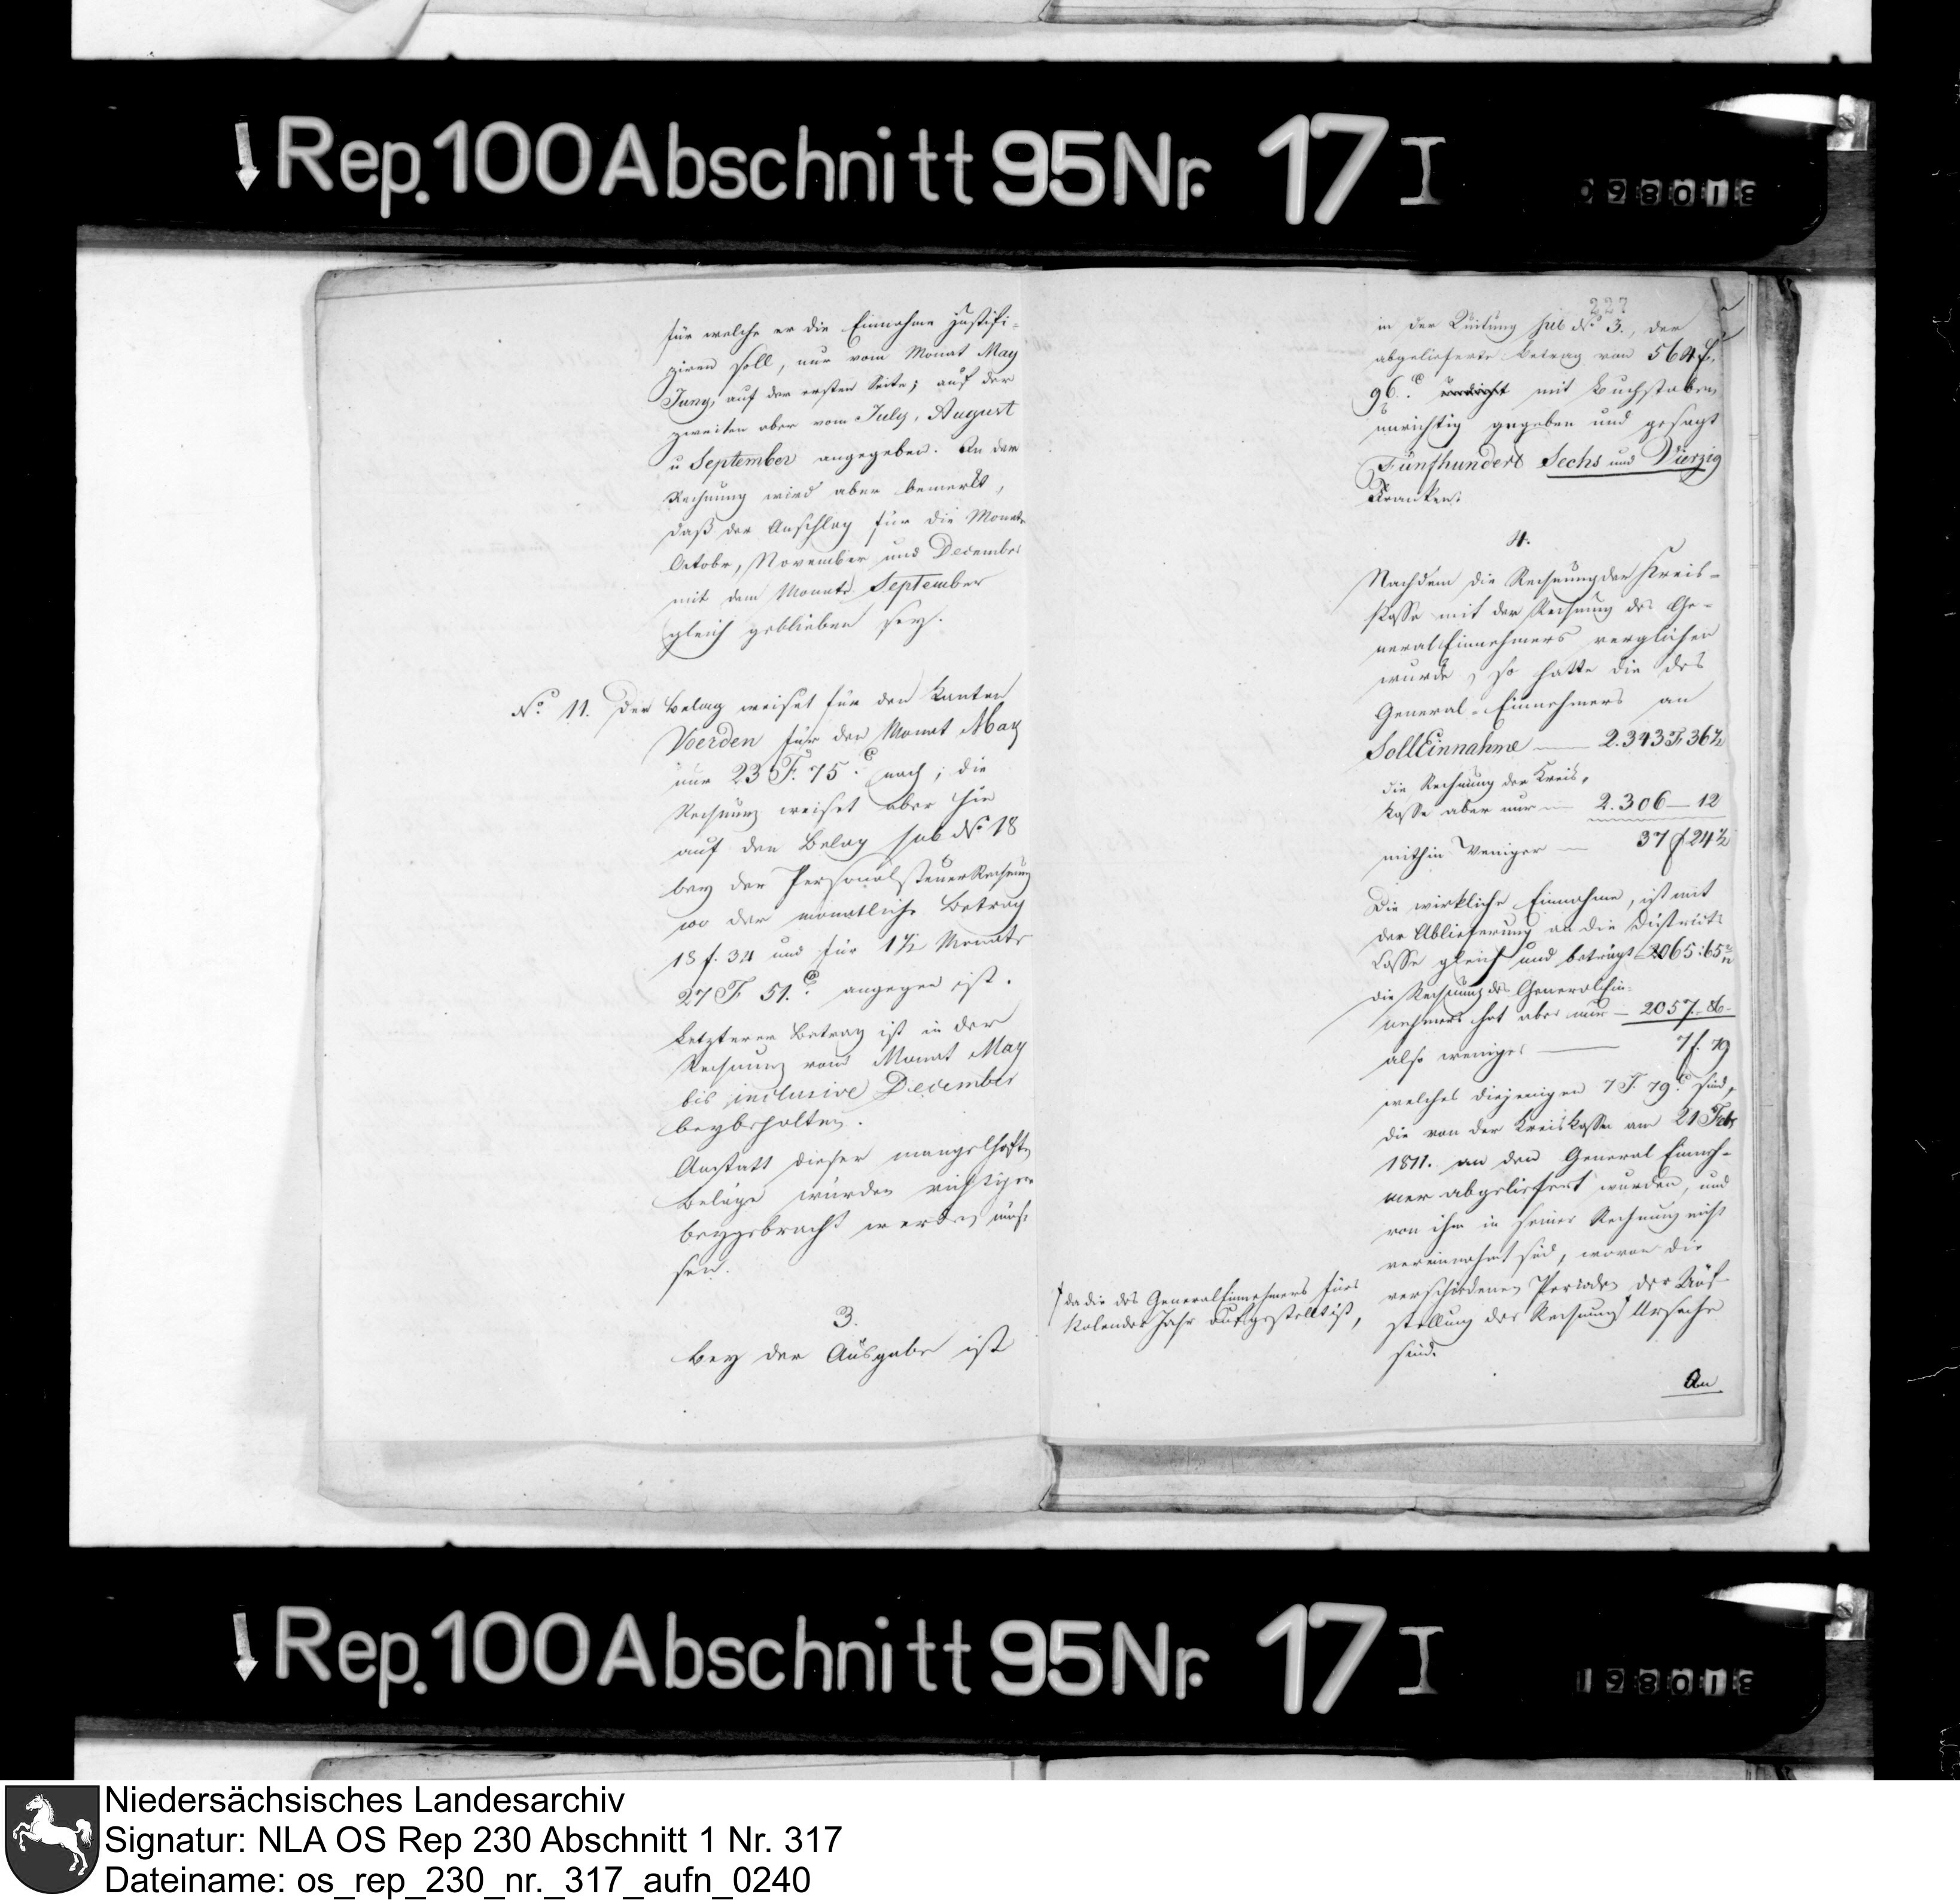 Rep. 100 Abschnitt 95 Nr. 17 I
098018
für welche er die Einnahme justifi-
ziren soll, nur vom Monat May
Juny, auf der ersten Seite; auf der
zweiten aber vom July, August
u September angegeben. In der
Rechnung wird aber bemerkt,
daß der Anschlag für die Monate
Octobr, November und December
mit dem Monate September
gleich geblieben sey.
No. 11. Der Belag weiset für den Kanton
Voerden für den Monat May
nur 23 F. 75 C nach; die
Rechnung weiset aber hin
auf den Belag sub No 18
bey der Personalsteuer Rechnung
wo der monatliche Betrag
18 f. 34 und für 1½ Monate
27 F 51. C. angegen ist.
Letzterer Betrag ist in der
Rechnung vom Monat May
bis inclusive December
beybehalten.
Anstatt dieser mangelhaften
Beläge würden richtigere
beygebracht werden müs-
sen.
3.
Bey der Ausgabe ist
227
in der Quitung sub No 3., der
abgelieferte Betrag von 564 f.
96. C. mit Buchstaben
unrichtig gegeben und gesagt
Fünfhundert Sechs und Vierzig
Franken.
4.
Nachdem die Rechnung der Kreis-
Kasse mit der Rechnung des Ge-
neral Einnehmers verglichen
wurde, so hatte die des
General-Einnehmers an
Soll Einnahme — 2.343 F 36½
die Rechnung der Kreis-
Kasse aber nur — 2.306 — 12
mithin weniger — 37 f 24½
Die wirkliche Einnahme, ist mit
der Ablieferung an die Districts
Casse gleich und beträgt 2065: 65
die Rechnung des General Ein-
nehmers hat aber nur — 2057.- 86-
also weniger — 7 f. 79
welches diejenigen 7 F. 79 C sind,
die von der Kreiskasse am 21 Febr
1811. an den General Einneh-
mer abgeliefert wurden, und
von ihm in seiner Rechnung nicht
vereinnahmt sind, wovon die
verschiedenen Perioden der Auf-
stellung der Rechnung Ursache
sind.
da die des General Einnehmers fürs
Kalender Jahr aufgestellt ist,
An
Rep. 100 Abschnitt 95 Nr. 17 I
198018
Niedersächsisches Landesarchiv
Signatur: NLA OS Rep 230 Abschnitt 1 Nr. 317
Dateiname: os_rep_230_nr._317_aufn_0240